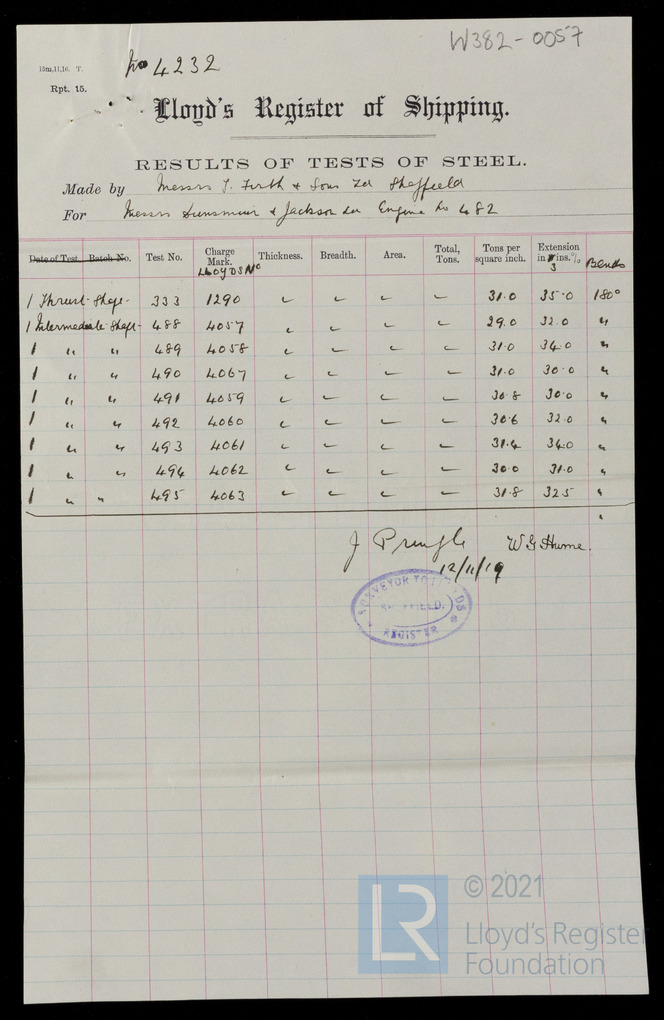 W382-0057
15m,11,16. T.
No 4232
Rpt. 15.
Lloyd's Register of Shipping.
RESULTS OF TESTS OF STEEL.
Made by Messrs T. Firth & Sons Ld Sheffield
For Messrs Dunsmuir & Jackson Ld Engine No 482
Date of Test. Batch No. Test No. Charge Mark. LLOYDS No Thickness. Breadth. Area. Total, Tons. Tons per square inch. Extension in 3 ins. % Bends
1 Thrust Shaft 333 1290 31.0 35.0 180°
1 Intermediate Shaft 488 4057 " 29.0 32.0 "
1 " " 489 4058 31.0 34.0 "
1 " " 490 4067 31.0 30.0 "
1 " " 491 4059 30.8 30.0 "
1 " " 492 4060 30.6 32.0 "
1 " " 493 4061 31.4 34.0 "
1 " " 494 4062 30.0 31.0 "
1 " " 495 4063 31.8 32.5 "
J Pringle W G Hume.
12/11/19
SURVEYOR TO LLOYDS
SHEFFIELD.
REGISTER
LR
© 2021
Lloyd's Register
Foundation